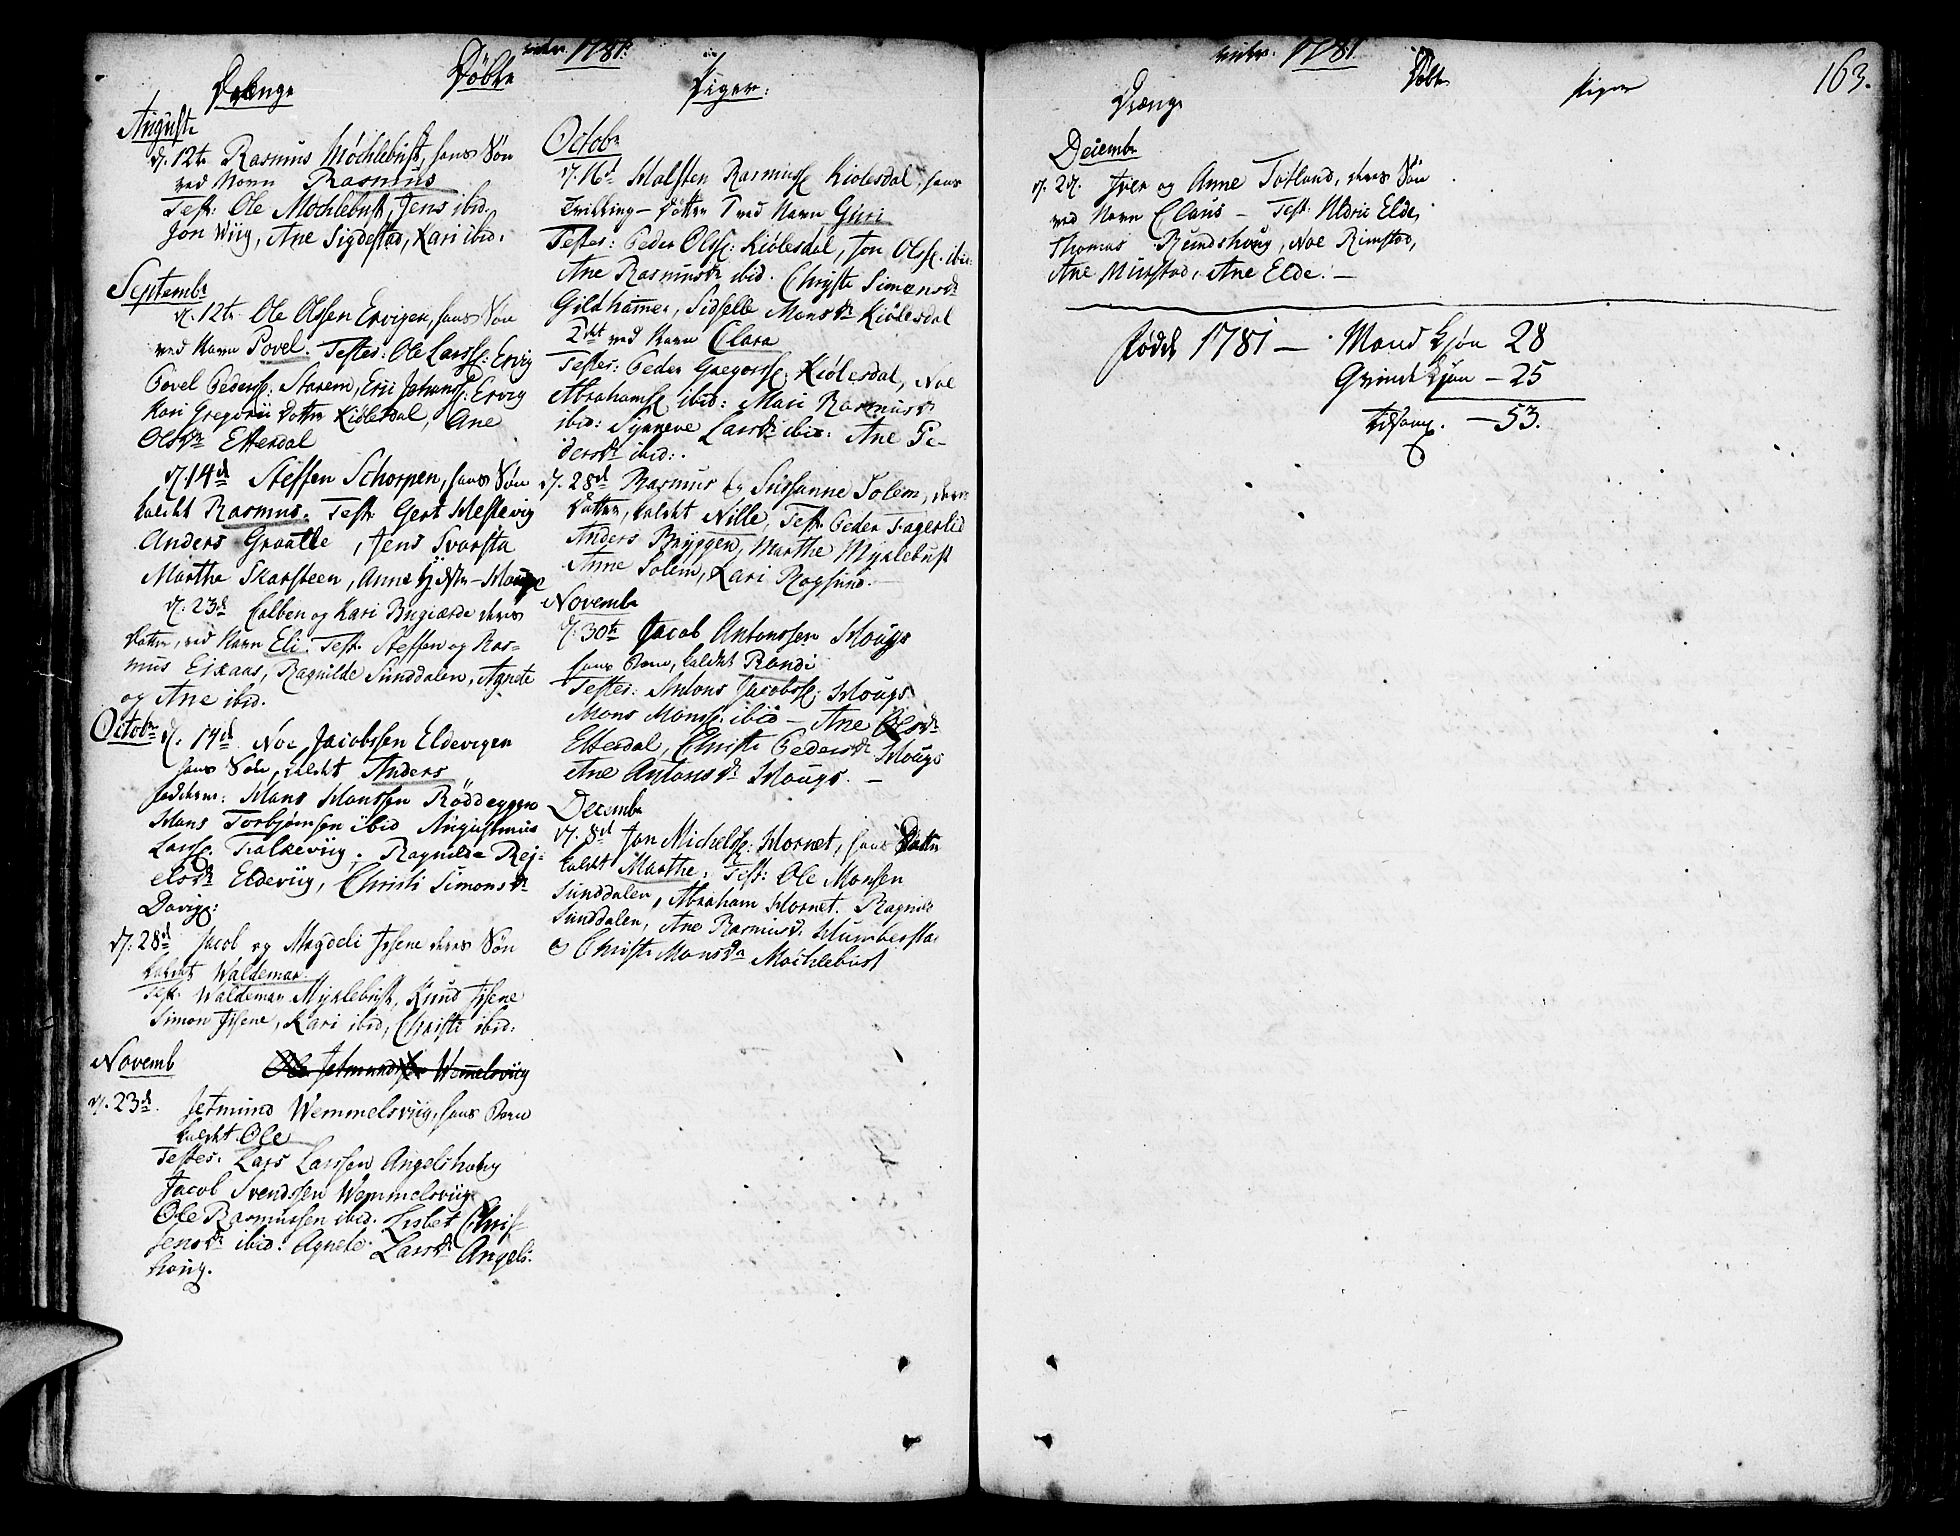 1781
Døbte
Drænge
August
d. 12te Rasmus Møchlebust, hans Søn
ved Navn Rasmus
Test: Ole Møchlebust, Jens ibid.
Jon Wiig, Ane Sigdestad, Kari ibid.
Septembr
d. 12te Ole Olssen Ervigen, hans Søn
ved Navn Povel. Testes: Ole Larss: Ervig
Povel Pederss: Starem, Eric Johanss: Ervig
Kari Gregorii Datter Kiølesdal, Ane
Olsdr Etterdal
d. 14d Steffen Schorpen, hans Søn
kaldet Rasmus. Test. Gert Hestevig
Anders Graatle, Jens Svarsta
Marthe Skarsteen, Anne
d. 23d og Kari deres
Datter, ved Navn Eli. Test. Steffen og Ras-
mus Eikaas, Ragnilde Sunddalen, Agnete
og Ane ibid.
Octobr d. 14d Noe Jacobssen Eldevigen
hans Søn, kaldet Anders
Fadderne: Hans Hanssen Røddeggen
Hans Torbjørnsen ibid Augustinus
Larss: Falkeviig. Ragnilde Rej-
elsdr Eldeviig, Christi Simonsdr
d. 28d Jacob og Magdeli Isene deres Søn
kaldet Waldemar
Test: Waldemar Myklebust, Knud Isene
Simon Isene, Kari ibid, Christi ibid:
Novemb Ole Jetmundssen Wemmelsviig
d. 23d. Jetmund Wemmelsviig, hans Barn
kaldet Ole
Testes: Lars Larssen Angelshoug
Jacob Svendssen Wemmelsviig
Ole Rasmussen ibid. Lisbet Chris-
tensdr ibid: Agnete Larsdr Angels-
houg.
Piger:
Octobr
d. 16d Halsten Rasmuss: Kiølesdal, hans
Tvilling-Døttre 1 ved Navn Guri
Testes: Peder Olss: Kiølesdal, Jon Olss. ibid.
Ane Rasmusdr ibid. Christi Simonsdr
Gildhammer, Sidselle Monsdr Kiølesdal
2det ved Navn Clara
Testes: Peder Gregorss: Kiølesdal, Noe
Abrahamss ibid: Mari Rasmusdr
ibid: Synneve Larsdr ibid: Ane Pe-
dersdr ibid:
d. 28d Rasmus og Sussanne Solem, deres
Datter, kaldet Nille, Test. Peder Fagerlid
Anders Bryggen, Marthe Myklebust
Anne Solem, Kari Rogsund.
Novembr
d. 30te Jacob Antonssen Hougs
hans Barn, kaldet Randi
Testes: Antons Jacobss: Hougs
Mons Monss. ibid - Ane Olsdr
Etterdal, Christi Pedersdr Hougs
Ane Antonsdr Hougs. -
Decembr
d. 8d Jon Michelss: Hornet, hans Datter
kaldet Marthe. Test: Ole Monsen
Sunddalen, Abraham Hornet. Ragnild
Sunddalen, Ane Rasmusdr Humberstad
& Christi Monsdr Møchlebust
1781
Døbte
163.
Drænge
Piger
Decembr
d. 27. Iver og Anne Totland, deres Søn
ved Navn Claus - Test: Eldric Elde,
Thomas Rundshoug, Noe Rimstad,
Ane Murstad, Ane Elde. -
Fødde 1781 - Mand kjøn 28
Qvinde kjøn - 25
tilsam. - 53.